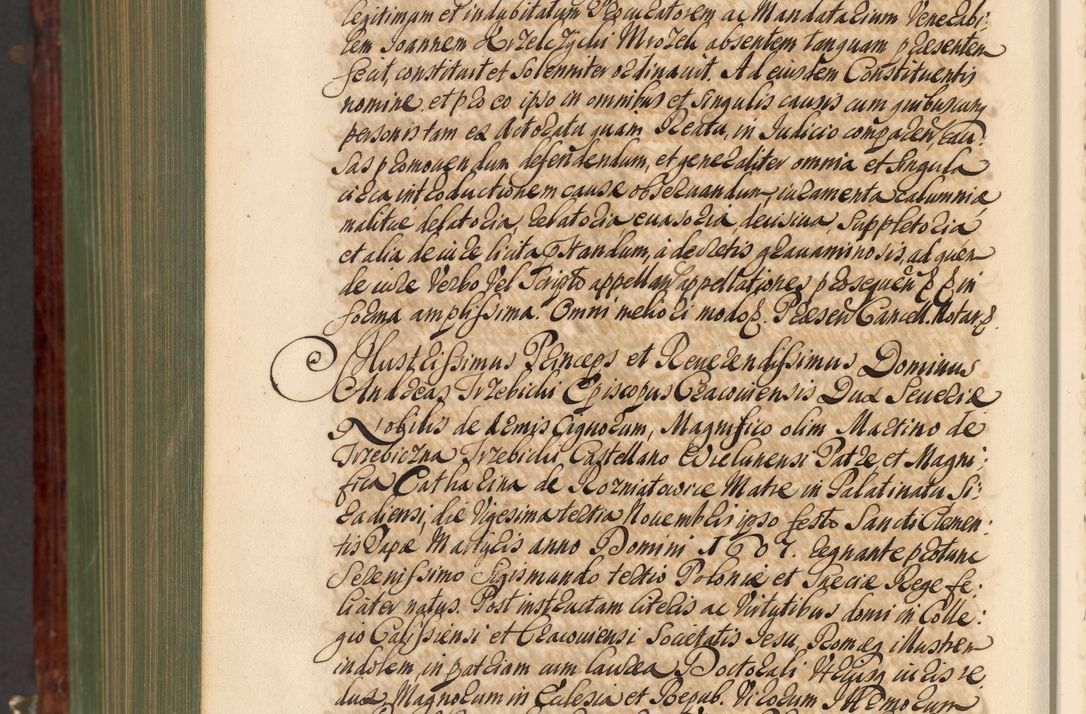 legitimam et indubitatum Procuratorem ac Mandatarium Venerabi-
lem Joannem Krzelczycki Mrozek absentem tanquam praesentem
fecit, constituit et solenniter ordinavit. Ad eiusdem Constituentis
nomine et pro eo ipso in omnibus et singulis causis cum quibuscunq
personis tam ea Actorata quam Reata, in Judicio comparen, cau-
sas promovendum defendendum, et generaliter omnia et singula
circa introductionem causae observandum, iuramenta calumniae
malitiae delatoria, relatoria evasoria, decisiva, suppletoria
et alia de iure licita pstandum, a decretis gravaminosis, ad quem
de iure Verbo Vel Scripto appellan, appellationes prosequen & & in
forma amplissima. Omni meliori modo &. Praesen Cancell. Notar &.
Illustrissimus Princeps et Reverendissimus Dominus
Andreas Trzebicki Episcopus Cracoviensis Dux Severiae
Nobilis de Armis Cignorum, Magnifico olim Martino de
Trzebiczna Trzebicki Castellano Wielunensi Patre, et Magni-
fica Catharina de Rozniatowice Matre in Palatinatu Si-
radiensi, die Vigesima tertia Novembris ipso festo Sancti Clemen-
tis Papae Martyris anno Domini 1607. regnante protunc
Serenissimo Sigismundo tertio Poloniae et Sueciae Rege fe-
liciter natus. Post instructam literis ac Virtutibus domi in Colle-
gio Calissiensi et Cracoviensi Societatis Jesu, Romaeq illustrem
indolem, in patriam cum laurea Doctorali Utriusq iuris re
dux Magnorum in Ecclesia et Repub. Virorum Memorum